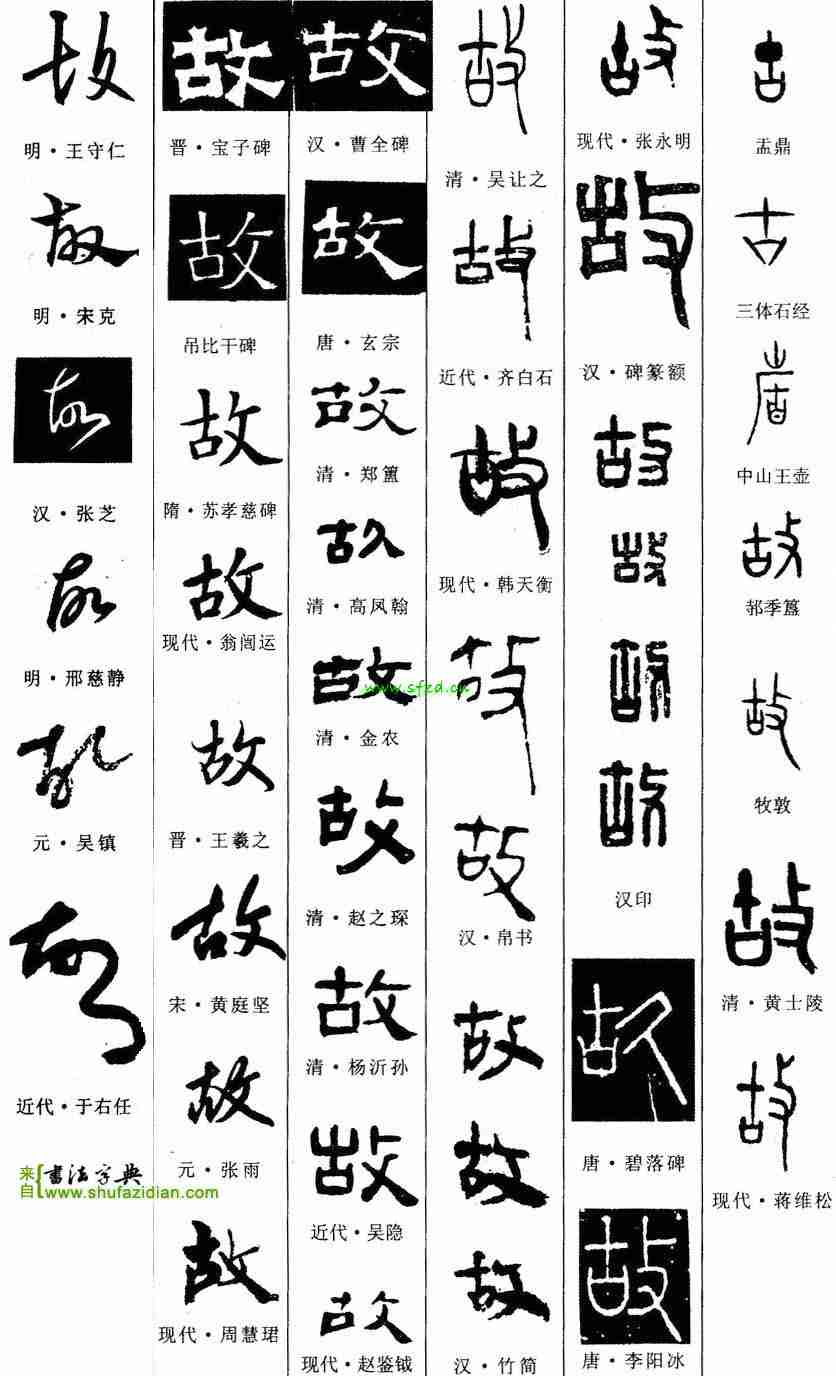 古
盂鼎
古
三体石经
中山王壶
故
郝季簋
故
牧敦
故
清·黄士陵
故
现代·蒋维松
故
现代·张永明
故
汉·碑篆额
故
故
故
故
汉印
故
唐·碧落碑
故
唐·李阳冰
故
清·吴让之
故
近代·齐白石
故
现代·韩天衡
故
故
汉·帛书
故
故
故
汉·竹简
故
汉·曹全碑
故
唐·玄宗
故
清·郑簠
故
清·高凤翰
故
www.sfzd.cn
清·金农
故
清·赵之琛
故
清·杨沂孙
故
近代·吴隐
故
现代·赵鉴钺
故
晋·宝子碑
故
吊比干碑
故
隋·苏孝慈碑
故
现代·翁闿运
故
晋·王羲之
故
宋·黄庭坚
故
元·张雨
故
现代·周慧珺
故
明·王守仁
故
明·宋克
故
汉·张芝
故
明·邢慈静
故
元·吴镇
故
近代·于右任
来自 书法字典
www.shufazidian.com